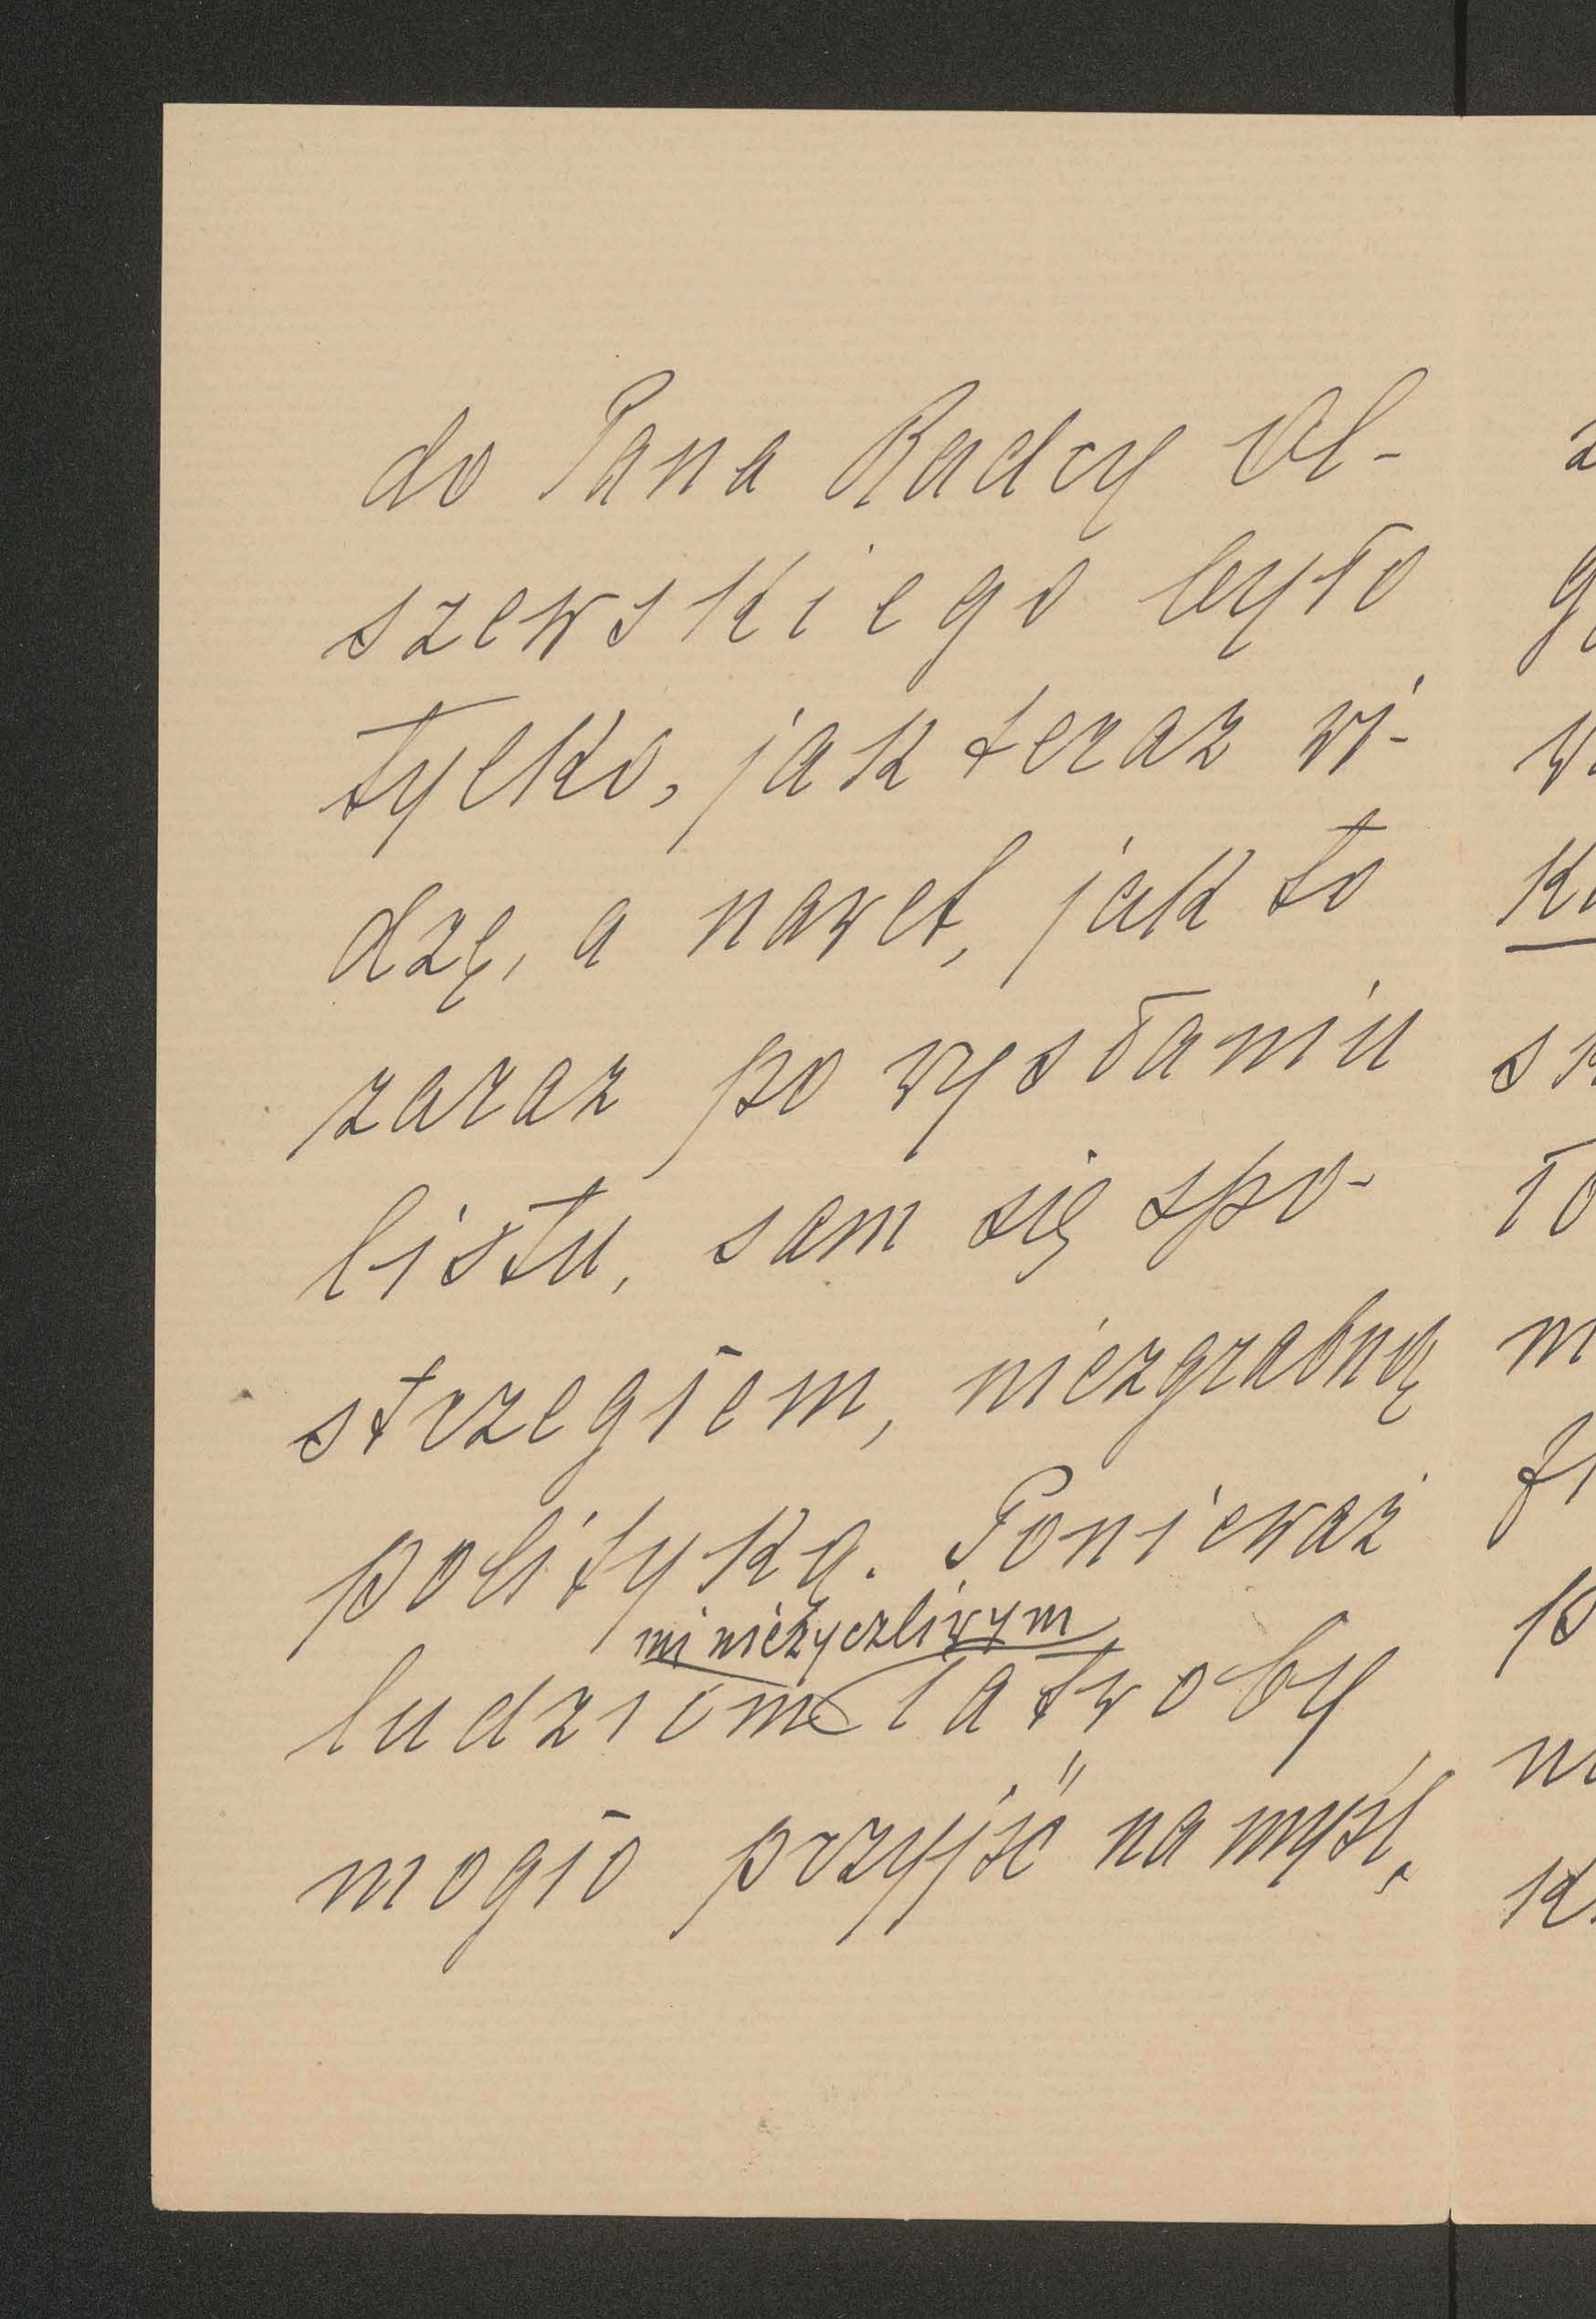 do Pana Radcy Ol-
szewskiego było
tylko, jak teraz wi-
dzę, a nawet, jak to
zaraz po wysłaniu
listu, sam się spo-
strzegłem, niezgrabną
polityką. Ponieważ
mi nieżyczliwym
ludziom łatwoby
mogło przyjść na myśl,